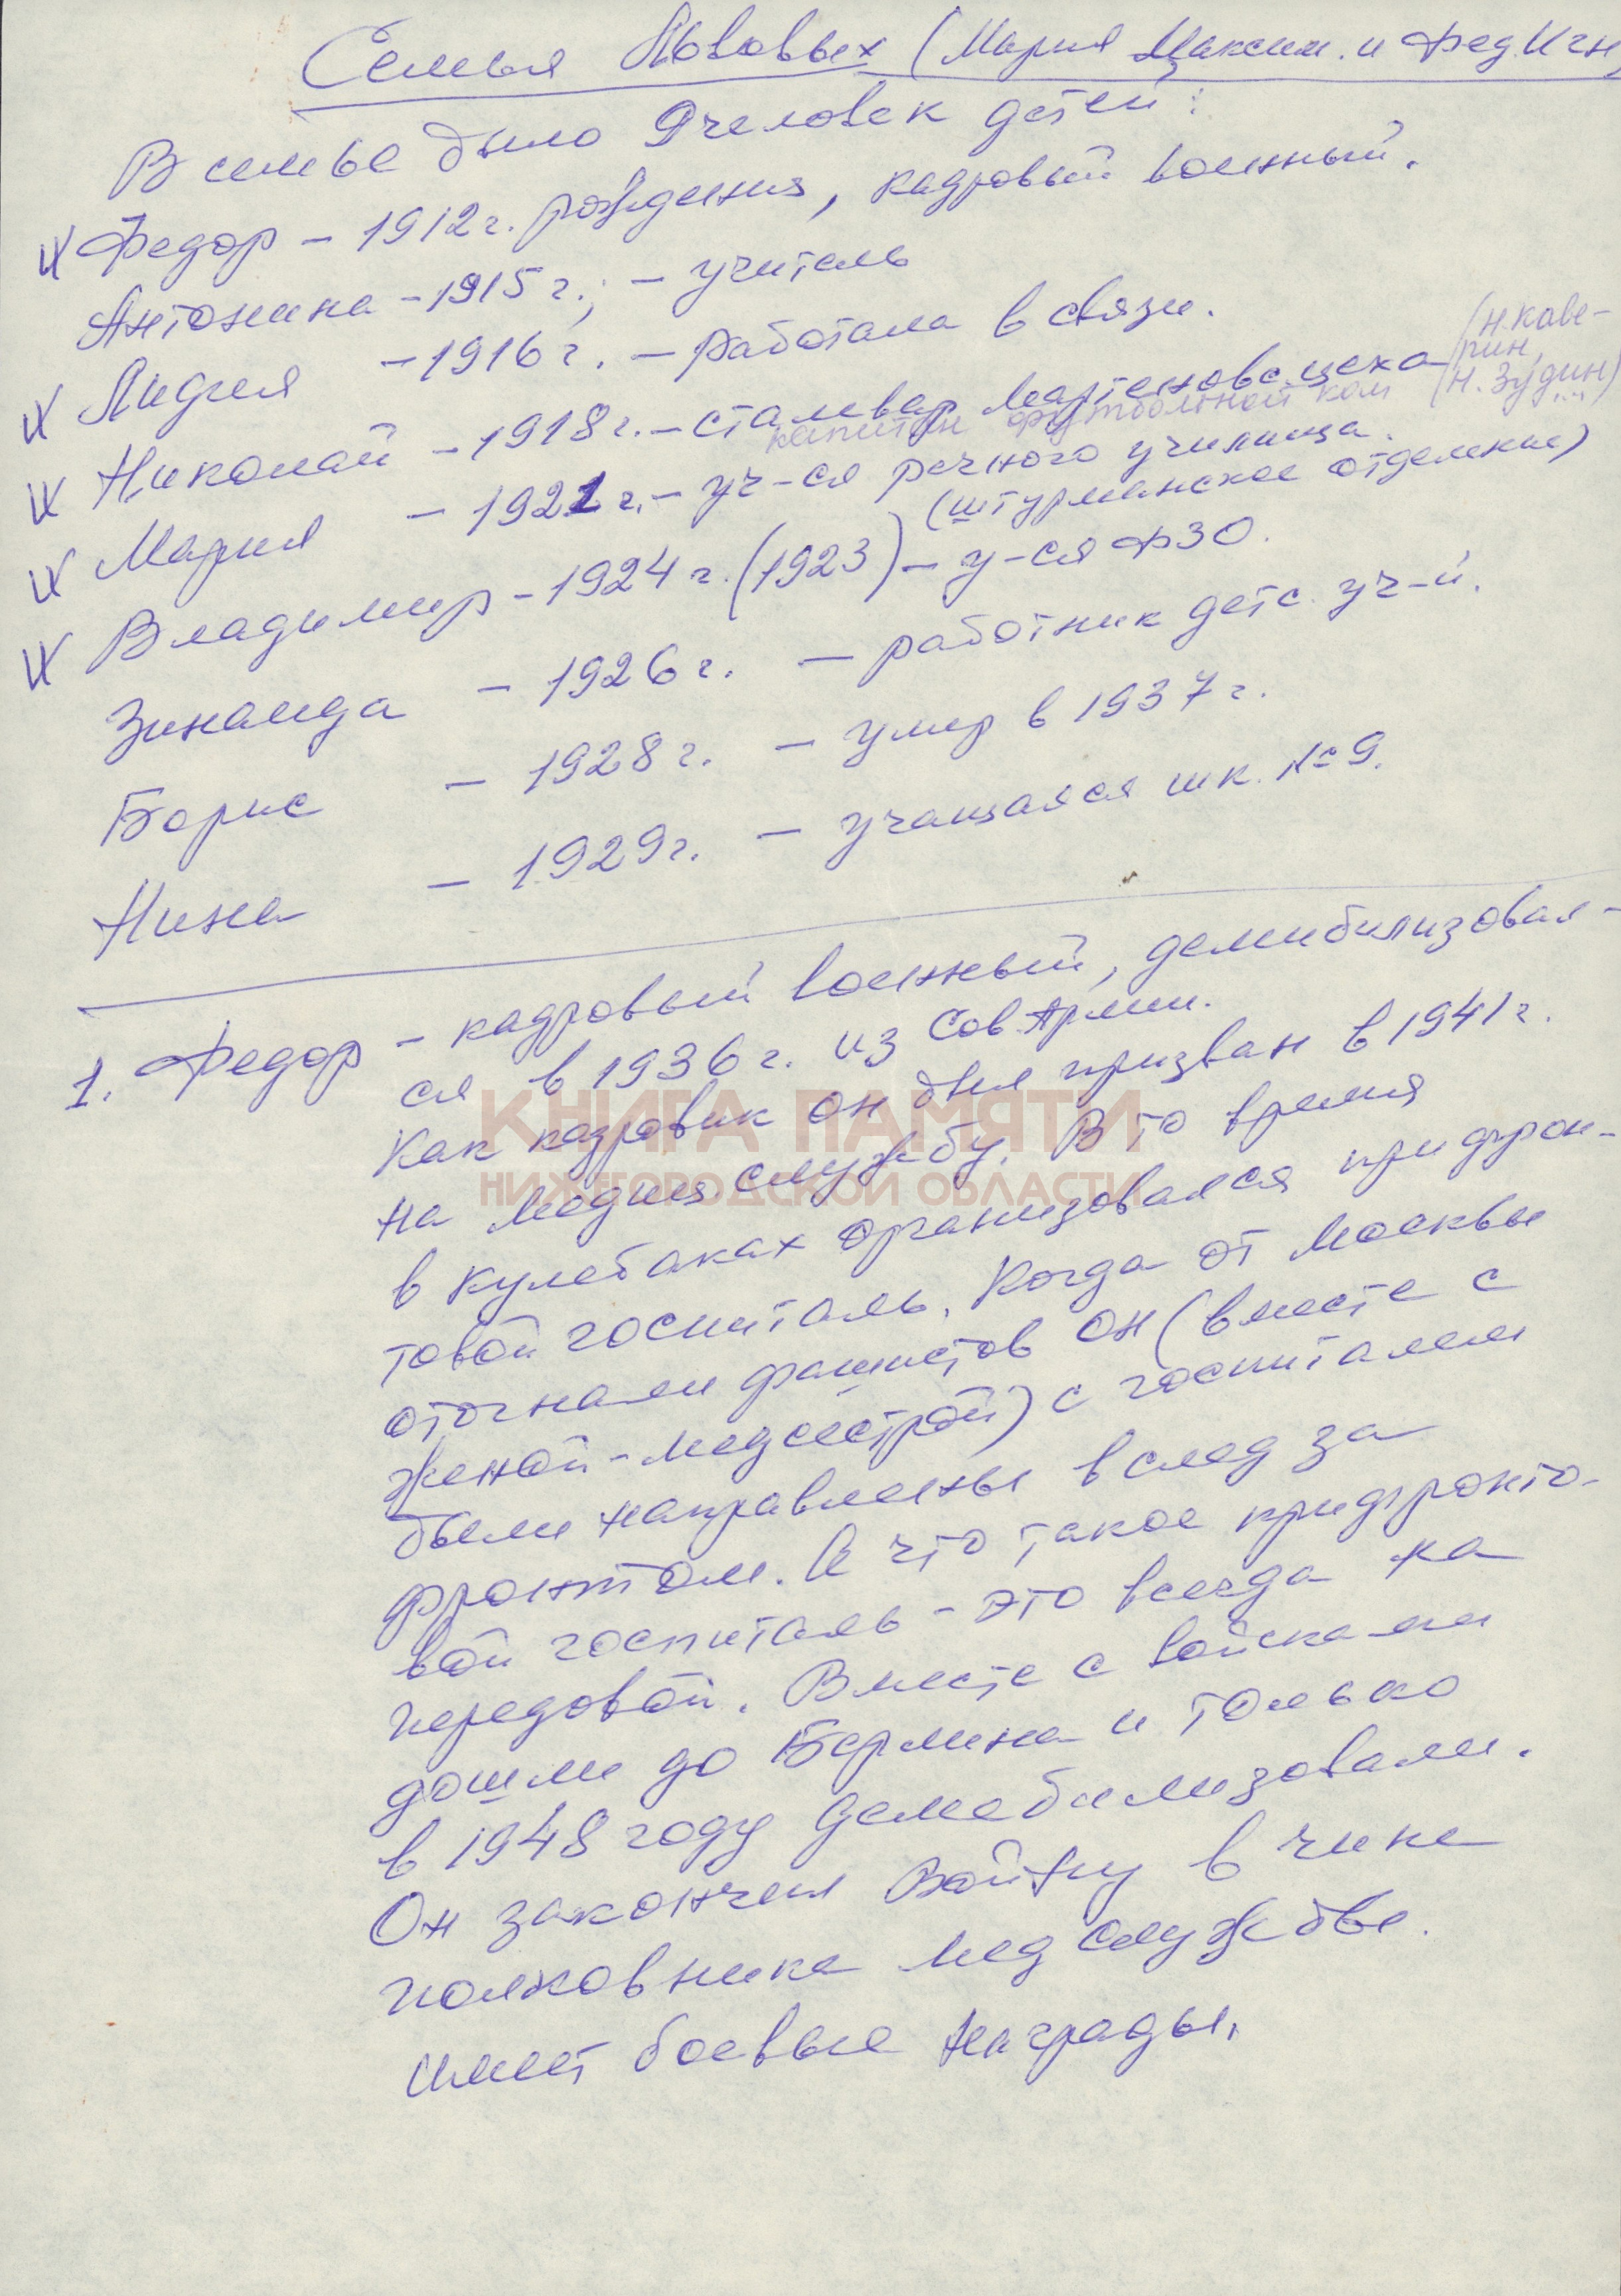 Семья Львовых (Мария Максим. и Фед. Игн
В семье было 9 человек детей:
V Федор – 1912 г. рождения, кадровый военный.
Антонина – 1915 г., – учитель
V Лидия – 1916 г. – работала в связи.
V Николай – 1918 г. – сталевар мартеновс. цеха (Н. Каве-
рин,
капитан футбольной ком (Н. Зудин)
V Мария – 1921 г. – уч-ся речного училища.
(штурманское отделение)
V Владимир – 1924 г. (1923) – у-ся ФЗО.
Зинаида – 1926 г. – работник детс. уч-й.
Борис – 1928 г. – умер в 1937 г.
Нина – 1929 г. – учащаяся шк. № 9.
1. Федор – кадровый военный, демибилизовал-
ся в 1936 г. из Сов Армии.
Как кадровик он был призван в 1941 г.
на медиц. службу. В то время
в Кулебаках организовался прифрон-
товой госпиталь. Когда от Москвы
отогнали фашистов он (вместе с
женой-медсестрой) с госпиталем
были направлены вслед за
фронтом. А что такое прифронто-
вой госпиталь – это всегда на
передовой. Вместе с войсками
дошли до Берлина и только
в 1948 году демобилизовали.
Он закончил войну в чине
полковника мед службы.
имеет боевые награды.
КНИГА ПАМЯТИ
НИЖЕГОРОДСКОЙ ОБЛАСТИ